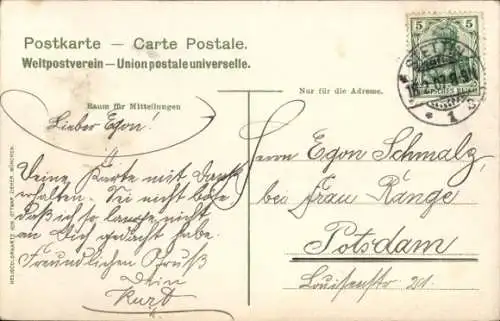 Postkarte — Carte Postale.
Weltpostverein — Union postale universelle.
Nur für die Adresse.
Raum für Mitteilungen
Lieber Egon!
Deine Karte mit Dank
erhalten. Sei nicht böse
daß ich so lange nicht
an Dich gedacht habe.
Freundlichen Gruß
Dein
Kurt
Herrn Egon Schmalz,
bei Frau Range
Potsdam
Louisenstr. 21.
5 5
DEUTSCHES REICH
STETTIN
1
HELIOCOLORKARTE VON OTTMAR ZIEHER, MÜNCHEN.